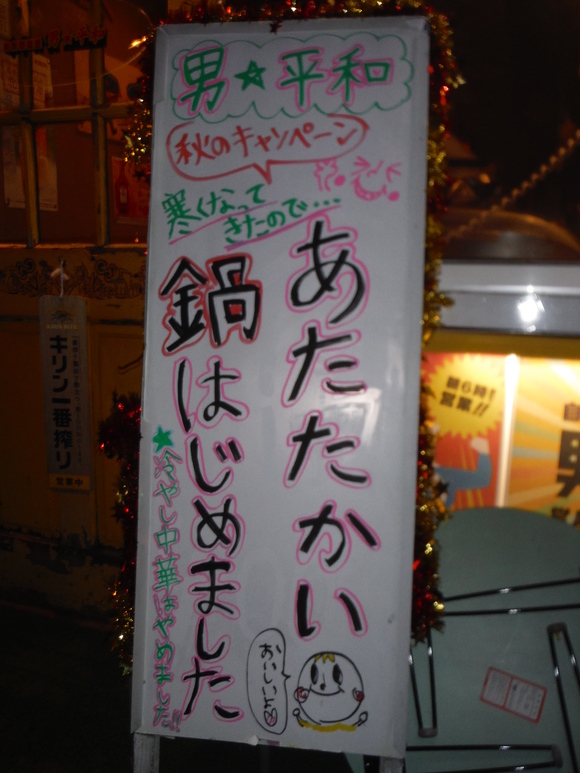 男★平和
秋のキャンペーン
寒くなって
きたので…
あたたかい
鍋はじめました
★冷やし中華はやめました!!
おいしいよ
キリン一番搾り
営業中
朝6時!
営業!!